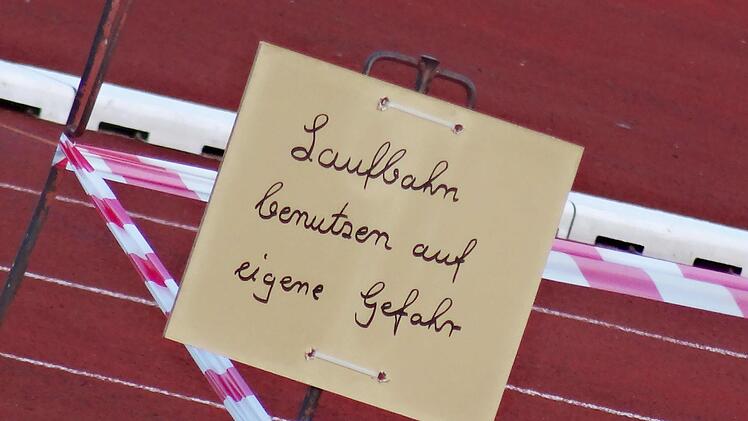 Laufbahn
benutzen auf
eigene Gefahr